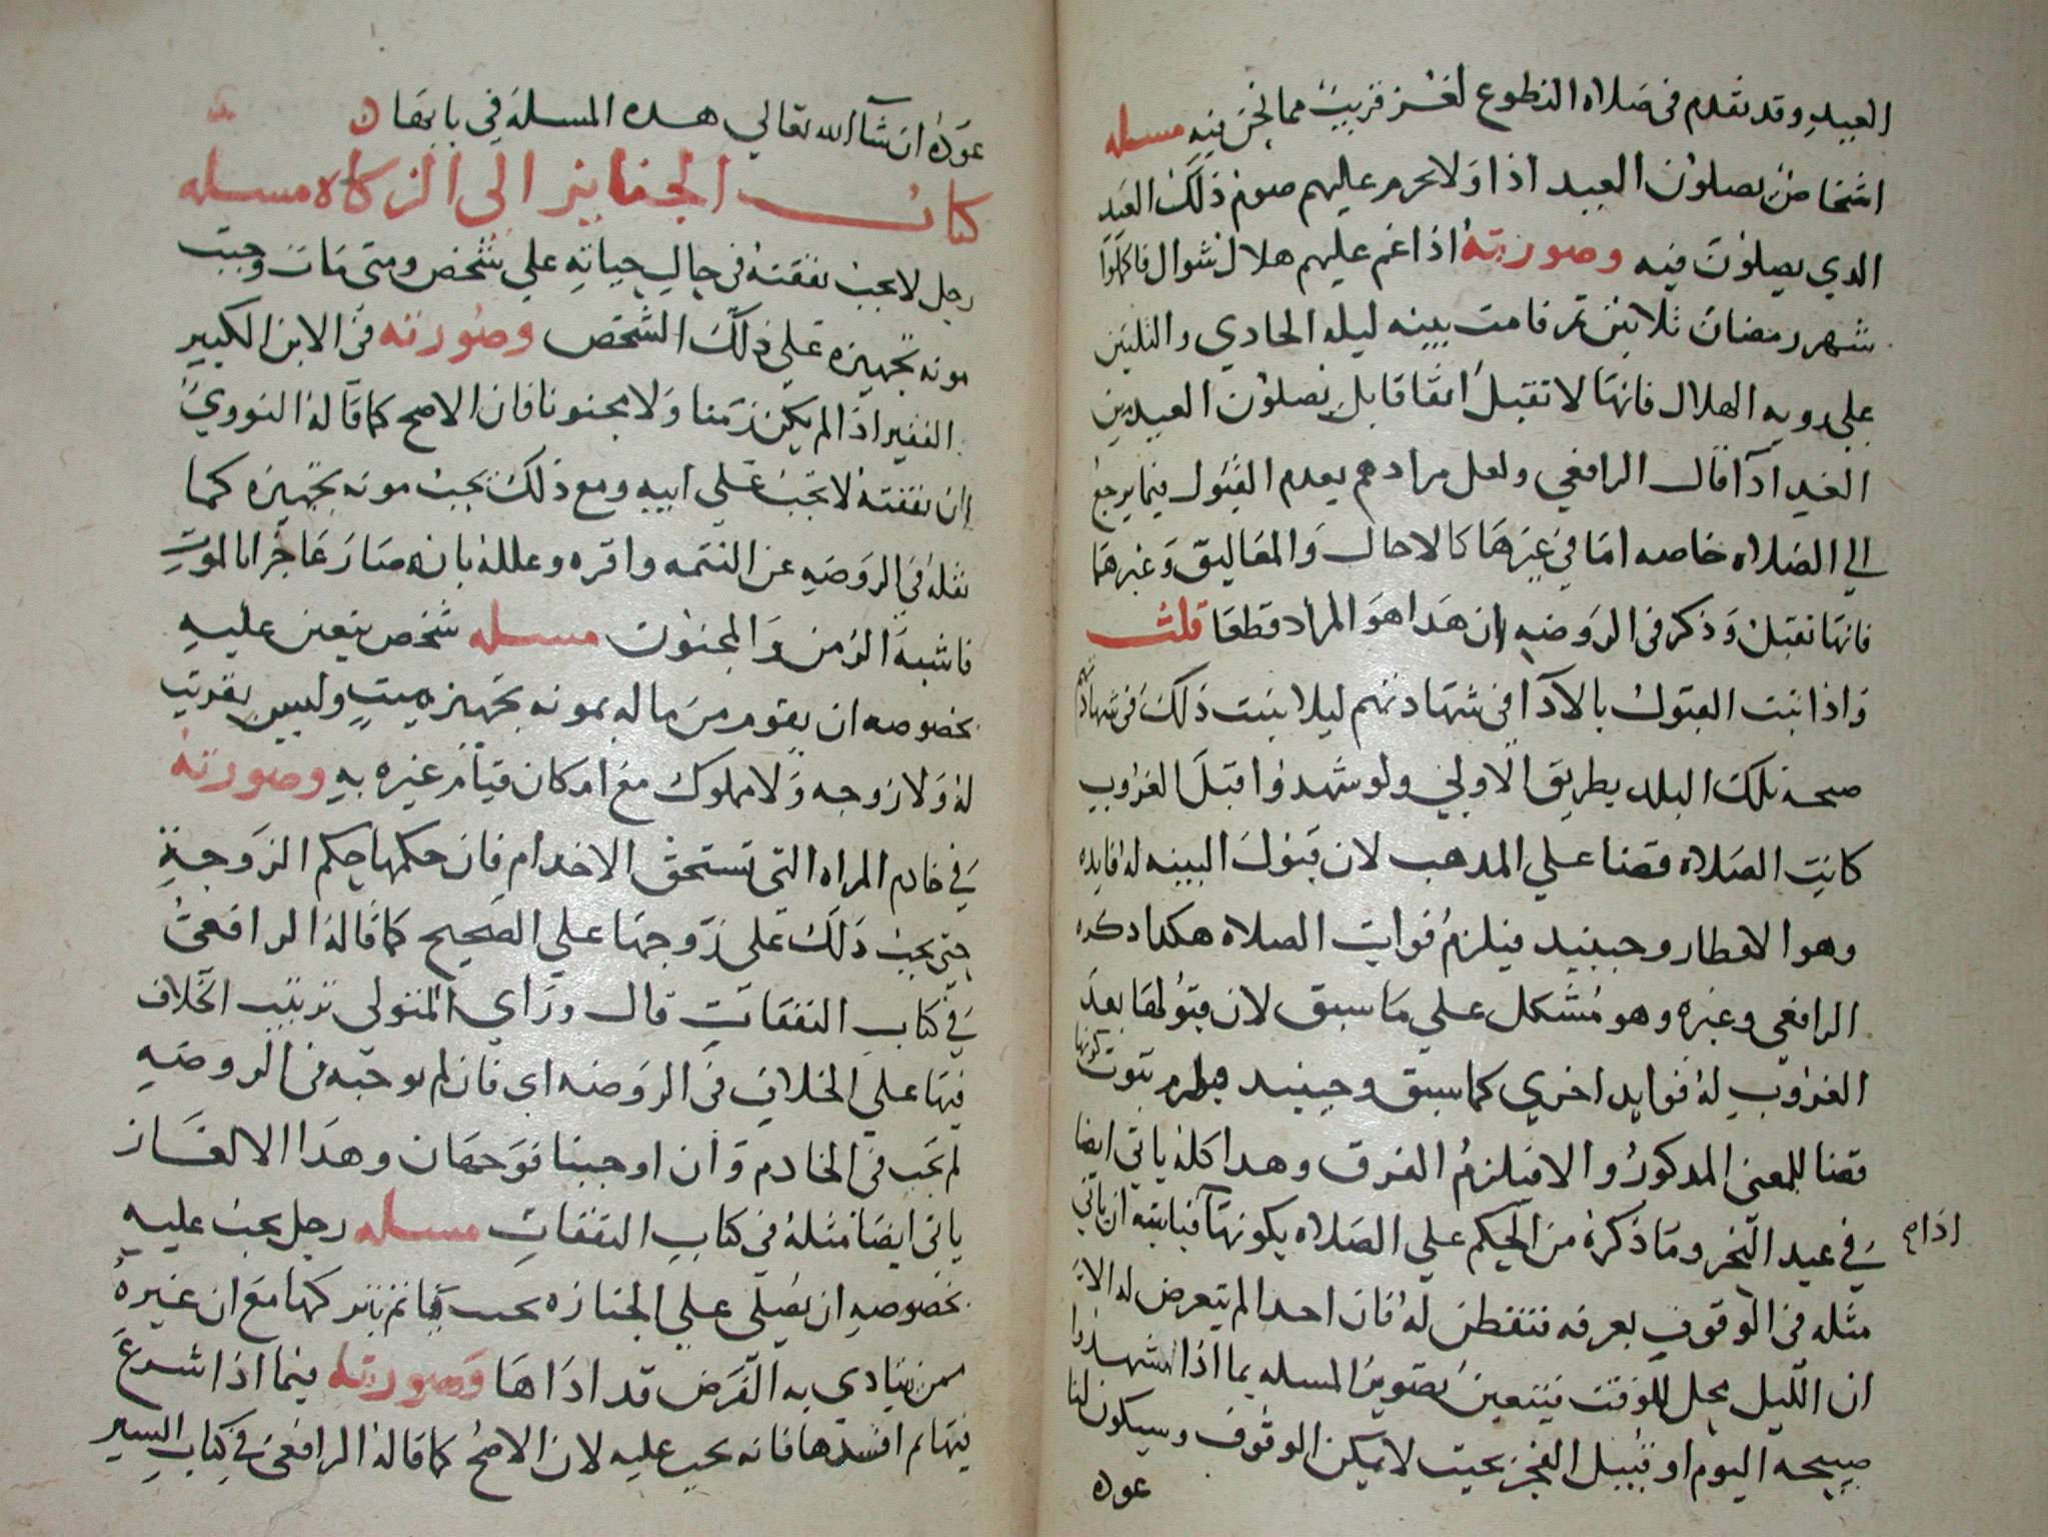 العيد وقد تقدم في صلاة التطوع لغز قريب مما نحن فيه مسله
اشخاص يصلون العيد اذا ولا يحرم عليهم صوم ذلك العيد
الذي يصلون فيه وصورته اذا غم عليهم هلال شوال فاكملوا
شهر رمضان ثلاثين ثم قامت بينه ليله الحادي والثلثين
على رويه الهلال فانها لا تقبل اتفاقا بل يصلون العيد من
الغد اداً قال الرافعي ولعل مرادهم بعدم القبول فيما يرجع
الي الصلاه خاصه اما في غيرها كالاجال والتعاليق وغيرهما
فانها تقبل وذكر في الروضه ان هذا هو المراد قطعا قلت
واذا ثبت القبول بالادا في شهادتهم ليلا يثبت ذلك في شهادتهم
صبحه تلك البلد بطريق الاولي ولو شهدوا قبل الغروب
كانت الصلاه قضا علي المذهب لان قبول البينه له فايده
وهو الافطار وحينيد فيلزم فوات الصلاه هكذا ذكره
الرافعي وغيره وهو مشكل علي ما سبق لان قبولها بعد
الغروب له فوايد اخري كما سبق وحينيد فيلزم ثبوت كونها
قضا للمعنى المدكور والا فيلزم الفرق وهدا كله ياتي ايضا
في عيد النحر وما ذكره من الحكم علي الصلاه بكونها فبايته ان ياتي
اذا م
مثله في الوقوف بعرفه فتفطن له فان احدا لم يتعرض له الا
ان الليل محل للوقت فيتعين تصوير المسله بما اذا شهدوا
صبيحه اليوم او قبيل الفجر بحيت لا يمكن الوقوف وسيكون لنا
عوده
عوده ان شآ الله تعالي هده المسله في بابها ن
كتاب الجنايز الى الزكاه مسله
رجل لا يجب نفقته في حال حياته علي شخص ومتى مات وجبت
مونه تجهيزه على ذلك الشخص وصورته في الابن الكبير
الفقير اذا لم يكن زمنا ولا مجنونا فان الاصح كما قاله النووي
ان نفقته لا تجب على ابيه ومع ذلك يجب مونه تجهيزه كما
نقله في الروضه عن التتمه واقره وعلله بانه صار عاجزا بالموت
فاشبه الزمن والمجنون مسله شخص يتعين عليه
بخصوصه ان يقوم من ماله بمونه تجهيز ميت وليس بقريب
له ولا زوجه ولا مملوك مع امكان قيام غيره به وصورته
في خادم المراه التي تستحق الاخدام فان حكمها حكم الزوجة
حتى يجب ذلك على زوجها علي الصحيح كما قاله الرافعي
في كتاب النفقات قال وراي المتولي ترتيب الخلاف
فيها علي الخلاف في الروضه اي فان لم نوجبه في الروضه
لم يجب في الخادم وان اوجبنا فوجهان وهذا الالغاز
ياتي ايضا مثله في كتاب النفقات مسله رجل يجب عليه
بخصوصه ان يصلى علي الجنازه بحيث ياثم بتركها مع ان غيره
ممن يتادي به الفرض قد اداها وصورته فيما اذا شرع
فيها ثم افسدها فانه يجب عليه لان الاصح كما قاله الرافعي في كتاب السير